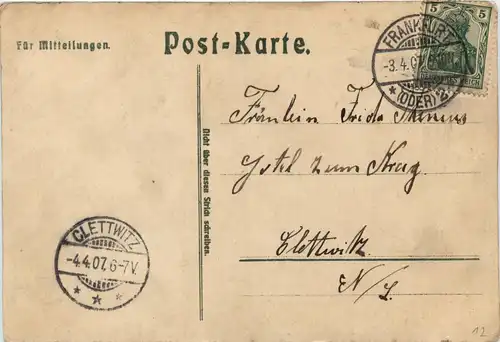 Für Mitteilungen.
Post-Karte.
5 5
FRANKFURT
-3.4.07.
(ODER) 2
Nicht über diesen Strich schreiben.
Fräulein Frida
Hotel zum Krug
Clettwitz
N/L.
CLETTWITZ
-4.4.07. 6-7V.
12